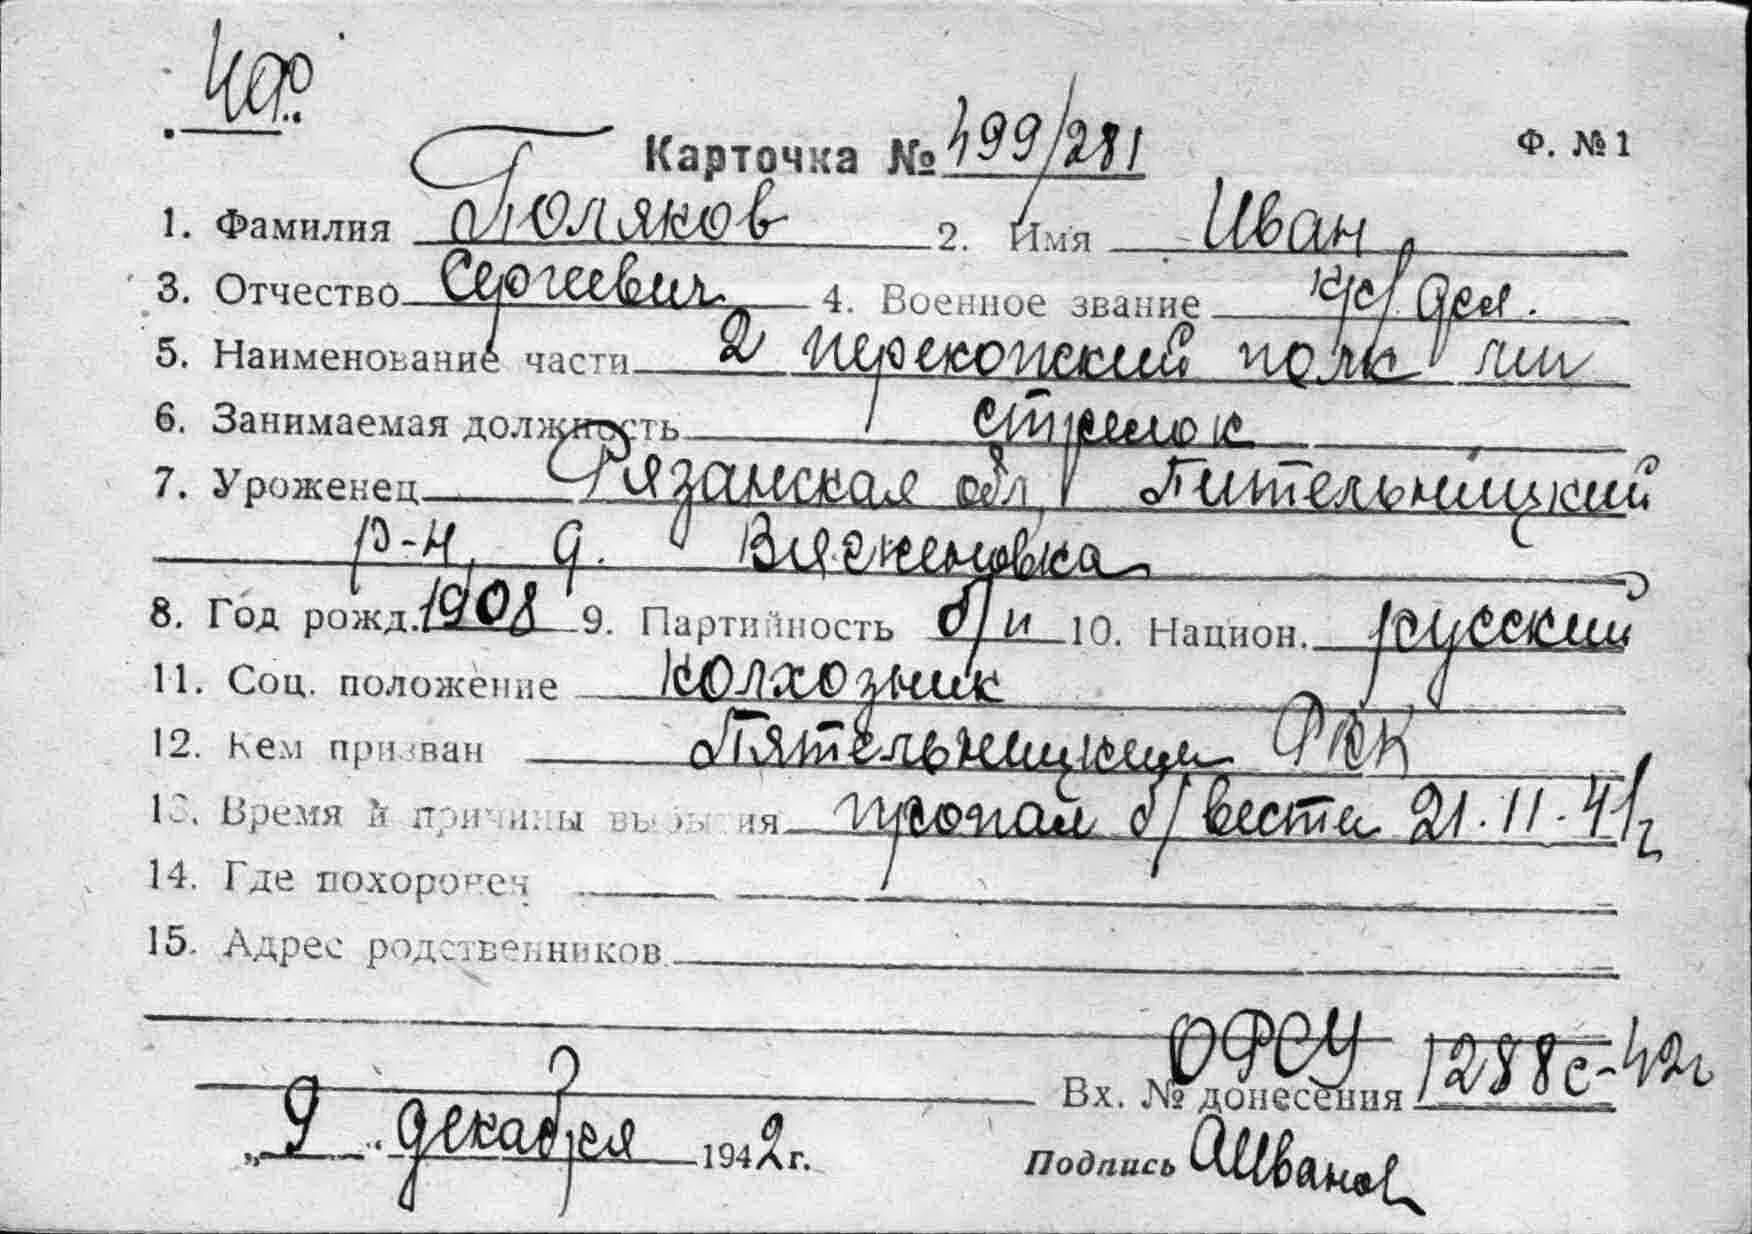 Карточка № 499/281 Ф. № 1
1. Фамилия Поляков 2. Имя Иван
3. Отчество Сергеевич 4. Военное звание кр/
5. Наименование части 2 перекопский полк
6. Занимаемая должность стрелок
7. Уроженец Рязанская обл, Пительницкий
р-н, д.
8. Год рожд. 1908 9. Партийность б/п 10. Национ. русский
11. Соц. положение колхозник
12. Кем призван Пятельницким РВК
13. Время и причины выбытия пропал б/вести 21.11.41г
14. Где похоронен
15. Адрес родственников
ОФСУ
Вх. № донесения 1288с-42г
„9" декабря 1942 г.
Подпись АИванов